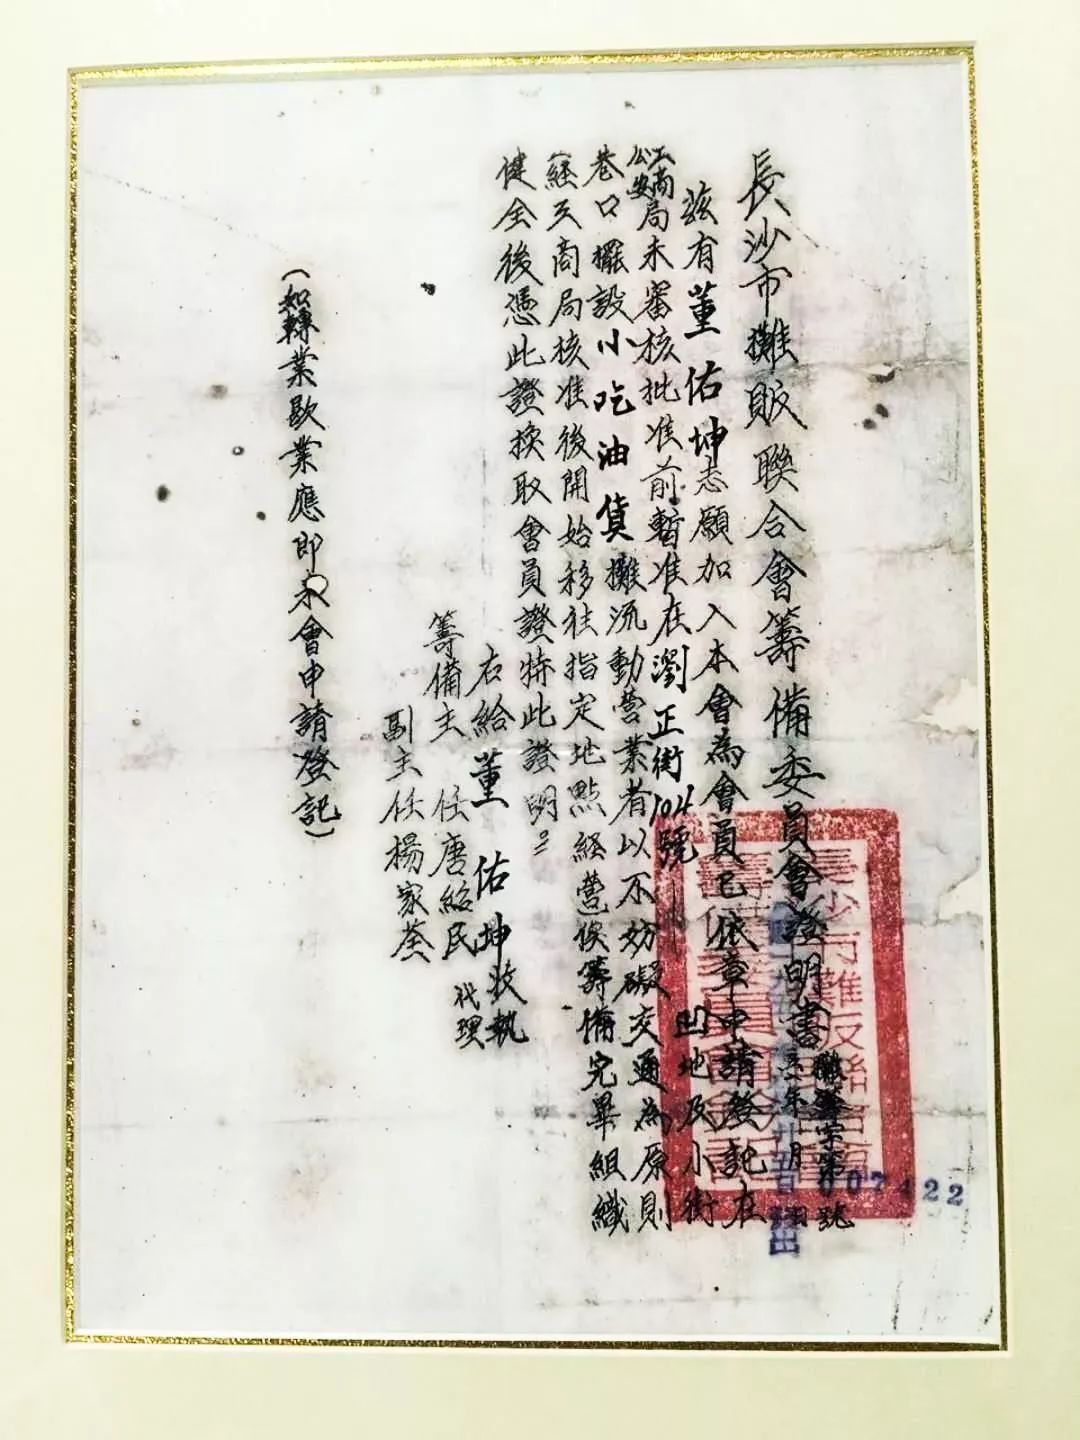 長沙市攤販聯合會籌備委員會證明書
攤籌字第007422號
茲有董佑坤志願加入本會為會員已依章申請登記在
工商公安局未審核批准前暫准在瀏正街104號 凹地及小街
巷口擺設小吃油貨攤流動營業者以不妨礙交通為原則
一經工商局核准後開始移往指定地點經營俟籌備完畢組織
健全後憑此證換取會員證特此證明
右給董佑坤收執
籌備主任唐紹民代理
副主任楊家荃
(如轉業歇業應即來會申請登記)